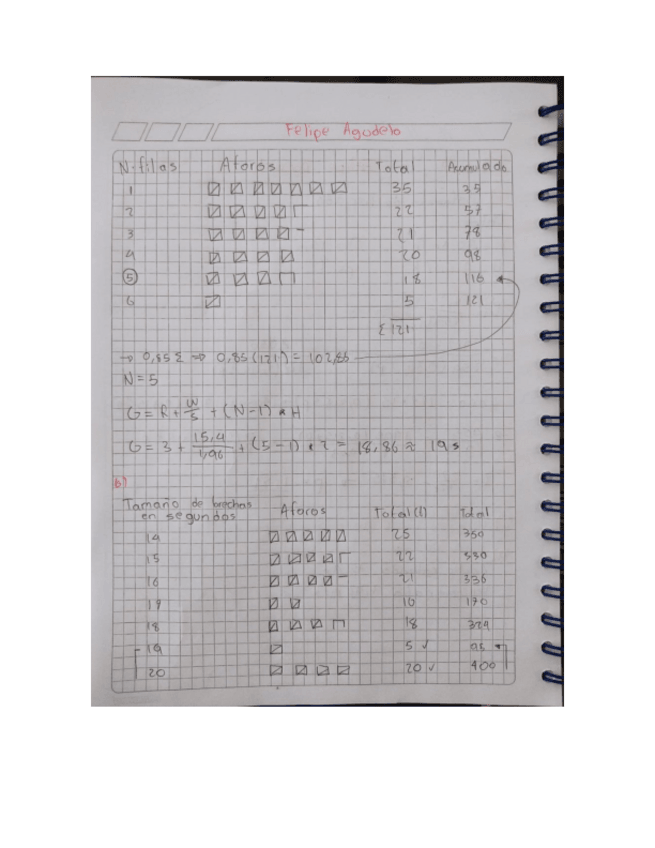 Felipe Agudelo
N-filas Aforos Total Acumulado
1 35 35
2 22 57
3 21 78
4 20 98
5 18 116
6 5 121
Σ 121
→ 0,85 Σ ⇒ 0,85 (121) = 102,86
N = 5
G = R + W/S + (N-1) * H
G = 3 + 15,4/1,96 + (5-1) * 2 = 18,86 ≈ 19 s
b)
Tamaño de brechas
en segundos Aforos Total (1) Total
14 25 350
15 22 330
16 21 336
17 10 170
18 18 324
19 5 ✓ 95
20 20 ✓ 400